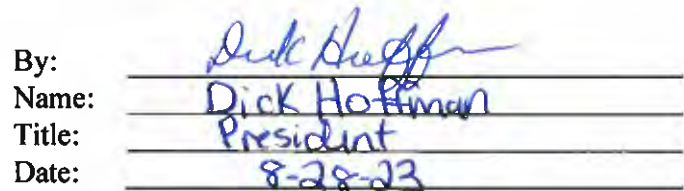 By: Dick Hoffman
Name: Dick Hoffman
Title: President
Date: 8-28-23